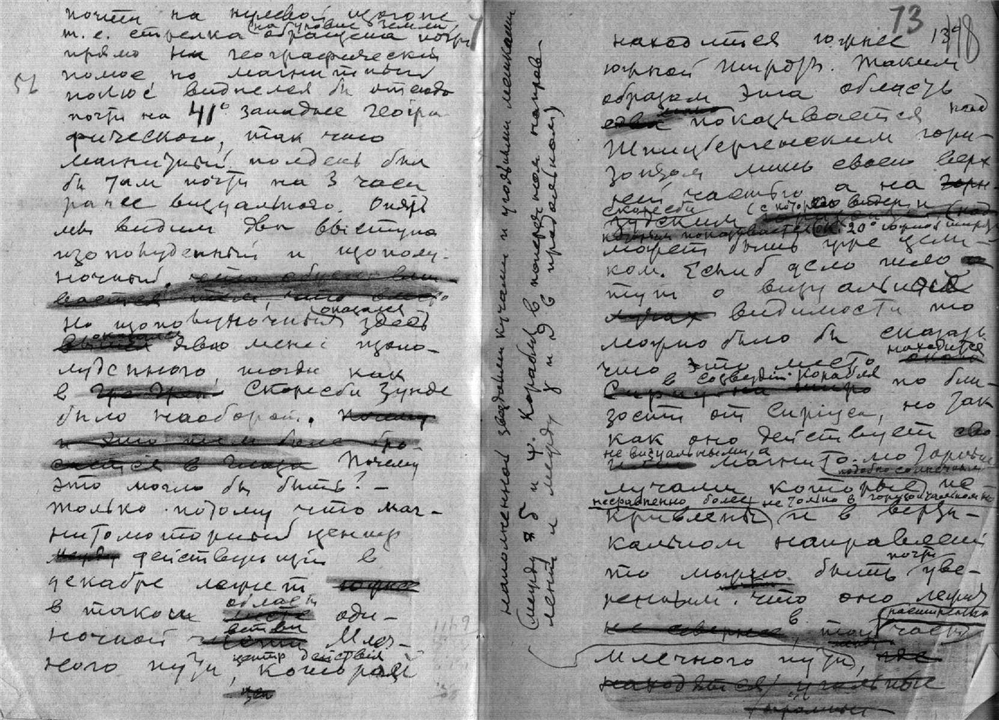 почти на нулевой изогоне
т.е. стрелка (на уровне земли) обращена почти
прямо на географический
полюс но магнитный
полюс виднелся бы отсюда
почти на 41° западнее геогра
фического, так что
магнитный полдень был
бы там почти на 3 часа
ранее визуального. Опять
мы видим два выступа
изополуденный и изополу-
ночный.
Но изополуночный здесь
оказался
двою менее изопо-
луденного тогда как
в Скоресби Зунде
было наоборот. Почему
это могло бы быть? –
только потому что маг-
нитомоторный центр
действующий в
декабре лежит
в таком области оди-
ночной ветви Млеч-
ного пути, центр действия которой
52
наполненной звездными кучами и угольными мешками
(между α δ и ψ. Корабля в поперечном направ-
лении и между γ и θ в продольном)
73
находится южнее 13°
южной широты. Таким
образом эта область
показывается над
Шпицбергенским гори-
зонтом лишь своею верх
ней частью а на
Скоресби (с которого виден и
20° южной широты
может быть уже цели-
ком. Если б дело шло
тут о визуальной
видимости то
можно было бы сказать
что это место находится
в созвездии Корабля по бли-
зости от Сириуса, но так
как оно действует
не визуальными, а
магнитомоторными
подобно солнечным
лучами которые не
несравненно более не только в горизонтальном но
кривлены и в верти-
кальном направлении
то можно быть почти уве-
ренным что оно лежит
в той расширенной части
Млечного пути,